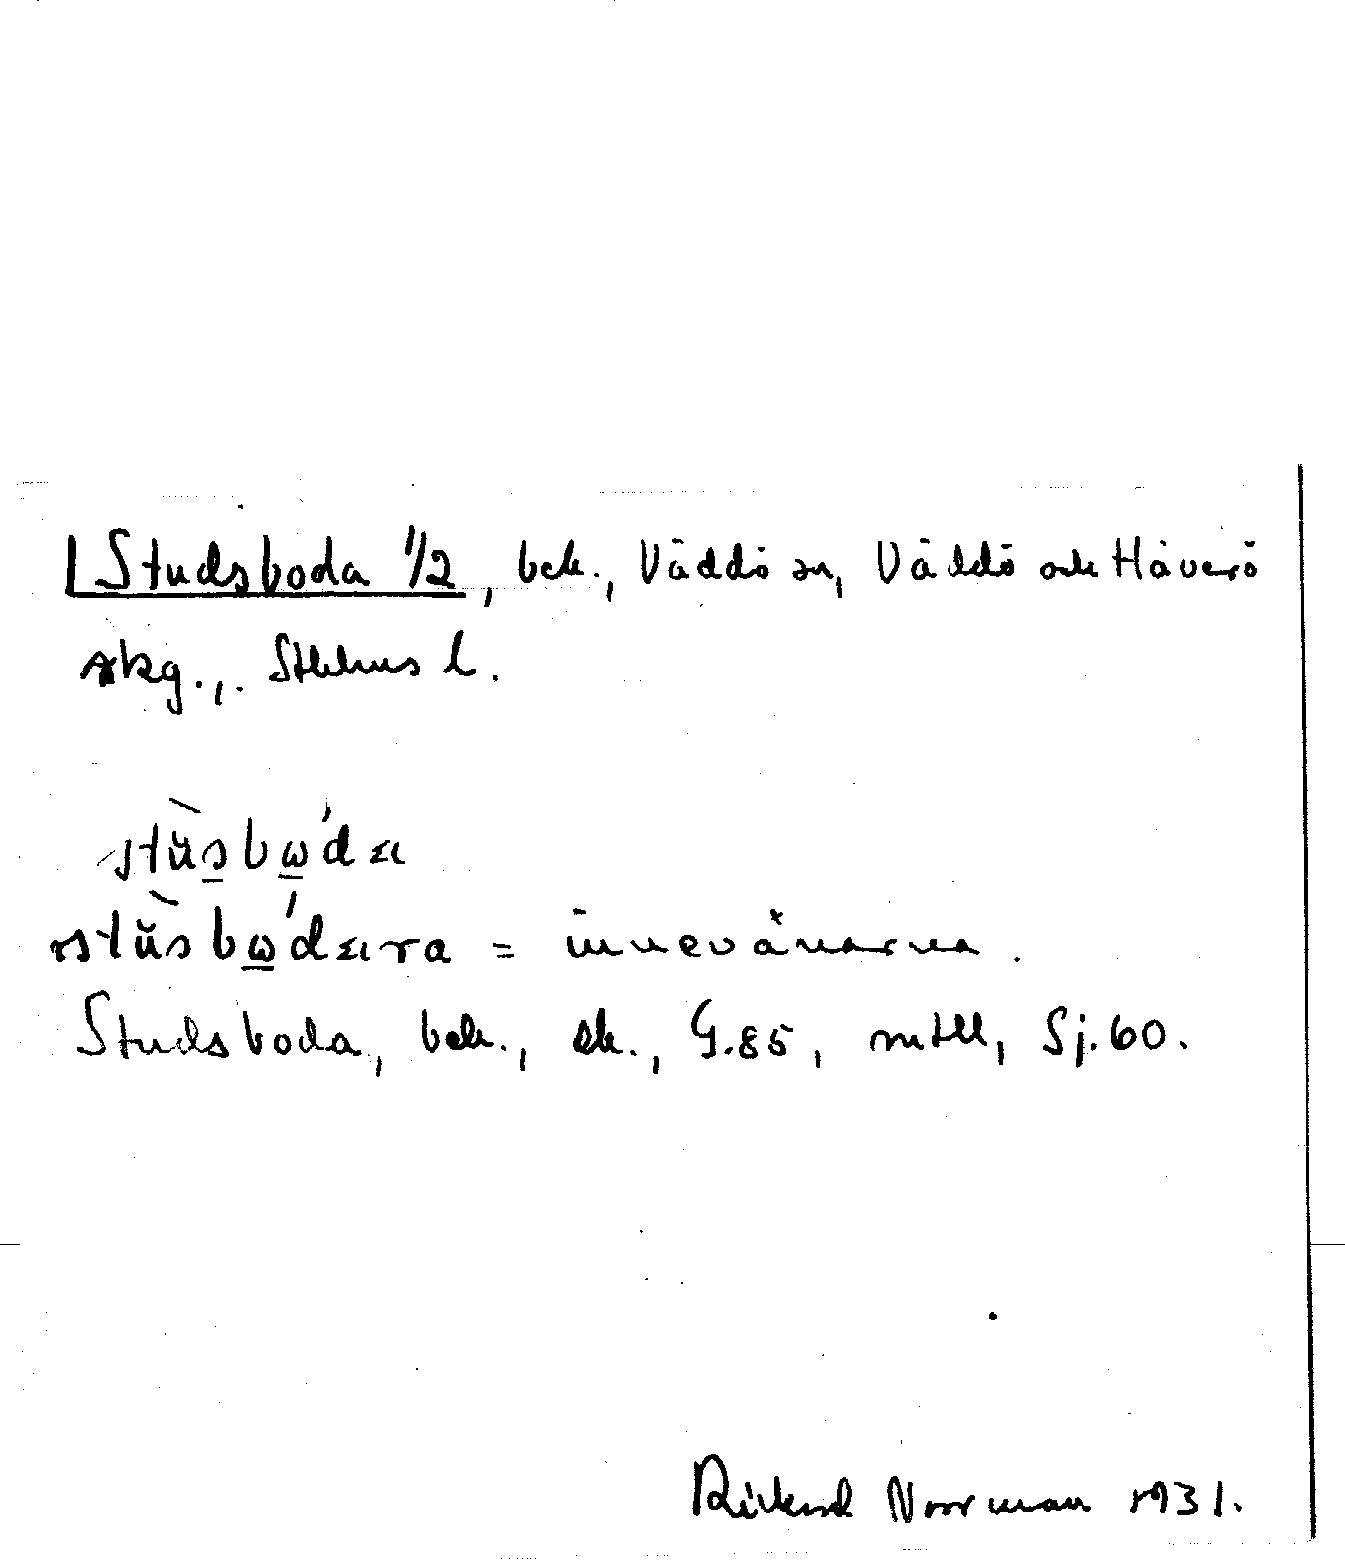 Studsboda 1/2, beb., Väddö sn, Väddö och Häverö
skg., Sthlms l.
stùsbώ̲da
stùsbώ̲dara = innevånarna.
Studsboda, beb., ek., G.85, mtll, Sj.60.
Rickard Norrman 1931.